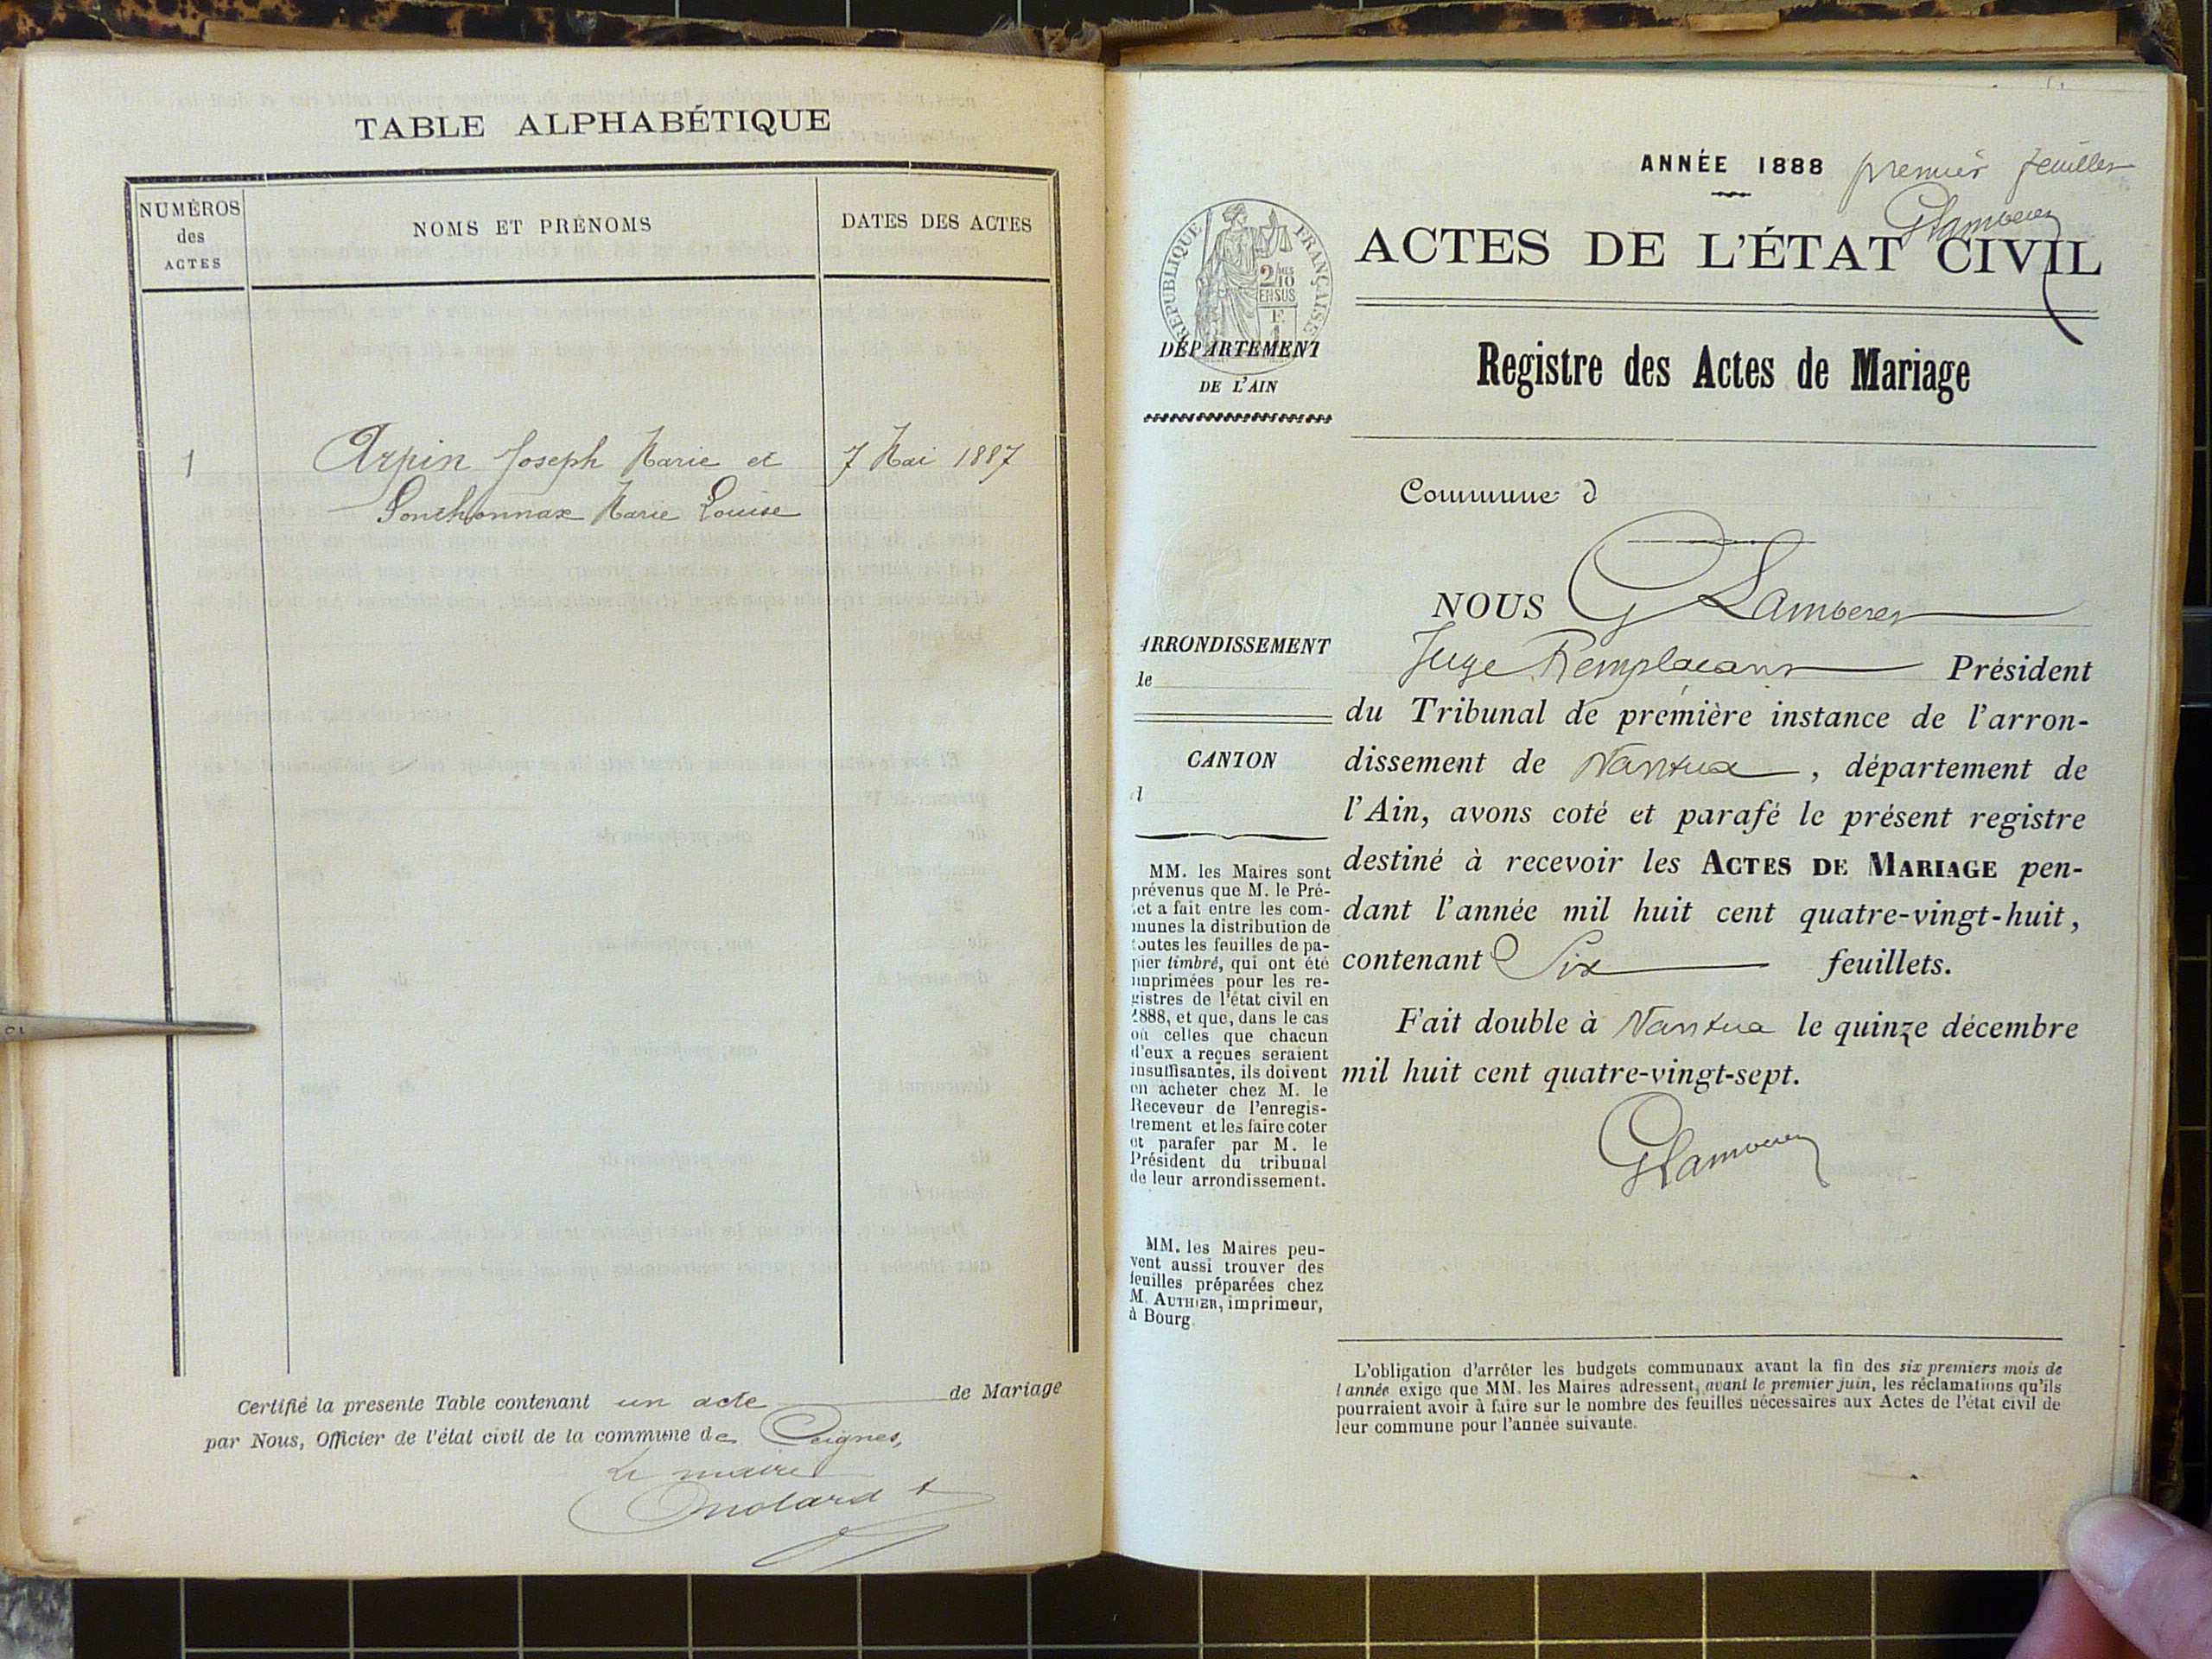 TABLE ALPHABÉTIQUE
NUMÉROS
des
ACTES
NOMS ET PRÉNOMS
DATES DES ACTES
1
Arpin Joseph Marie et
7 Mai 1887
Sonthonnax Marie Louise
Certifié la presente Table contenant un acte de Mariage
par Nous, Officier de l'état civil de la commune de Peignes,
Le maire
ANNÉE 1888 premier feuillet
ACTES DE L'ÉTAT CIVIL
RÉPUBLIQUE FRANÇAISE
2/10
EN SUS
DÉPARTEMENT
DE L'AIN
Registre des Actes de Mariage
Commune d
NOUS G Lambert
Juge Remplaçant Président
du Tribunal de première instance de l'arron-
dissement de Nantua, département de
l'Ain, avons coté et parafé le présent registre
destiné à recevoir les ACTES DE MARIAGE pen-
dant l'année mil huit cent quatre-vingt-huit,
contenant Six feuillets.
Fait double à Nantua le quinze décembre
mil huit cent quatre-vingt-sept.
GLambert
ARRONDISSEMENT
de
CANTON
d
MM. les Maires sont
prévenus que M. le Pré-
fet a fait entre les com-
munes la distribution de
toutes les feuilles de pa-
pier timbré, qui ont été
imprimées pour les re-
gistres de l'état civil en
1888, et que, dans le cas
où celles que chacun
d'eux a reçues seraient
insuffisantes, ils doivent
en acheter chez M. le
Receveur de l'enregis-
trement et les faire coter
et parafer par M. le
Président du tribunal
de leur arrondissement.
MM. les Maires peu-
vent aussi trouver des
feuilles préparées chez
M. AUTHIER, imprimeur,
à Bourg.
L'obligation d'arrêter les budgets communaux avant la fin des six premiers mois de
l'année exige que MM. les Maires adressent, avant le premier juin, les réclamations qu'ils
pourraient avoir à faire sur le nombre des feuilles nécessaires aux Actes de l'état civil de
leur commune pour l'année suivante.